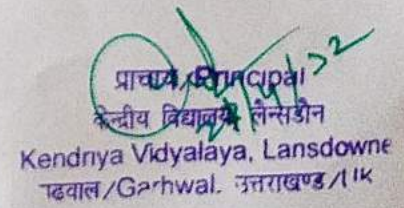 प्राचार्य/Principal
केन्द्रीय विद्यालय लैन्सडौन
Kendriya Vidyalaya, Lansdowne
गढवाल/Garhwal. उत्तराखण्ड/UK